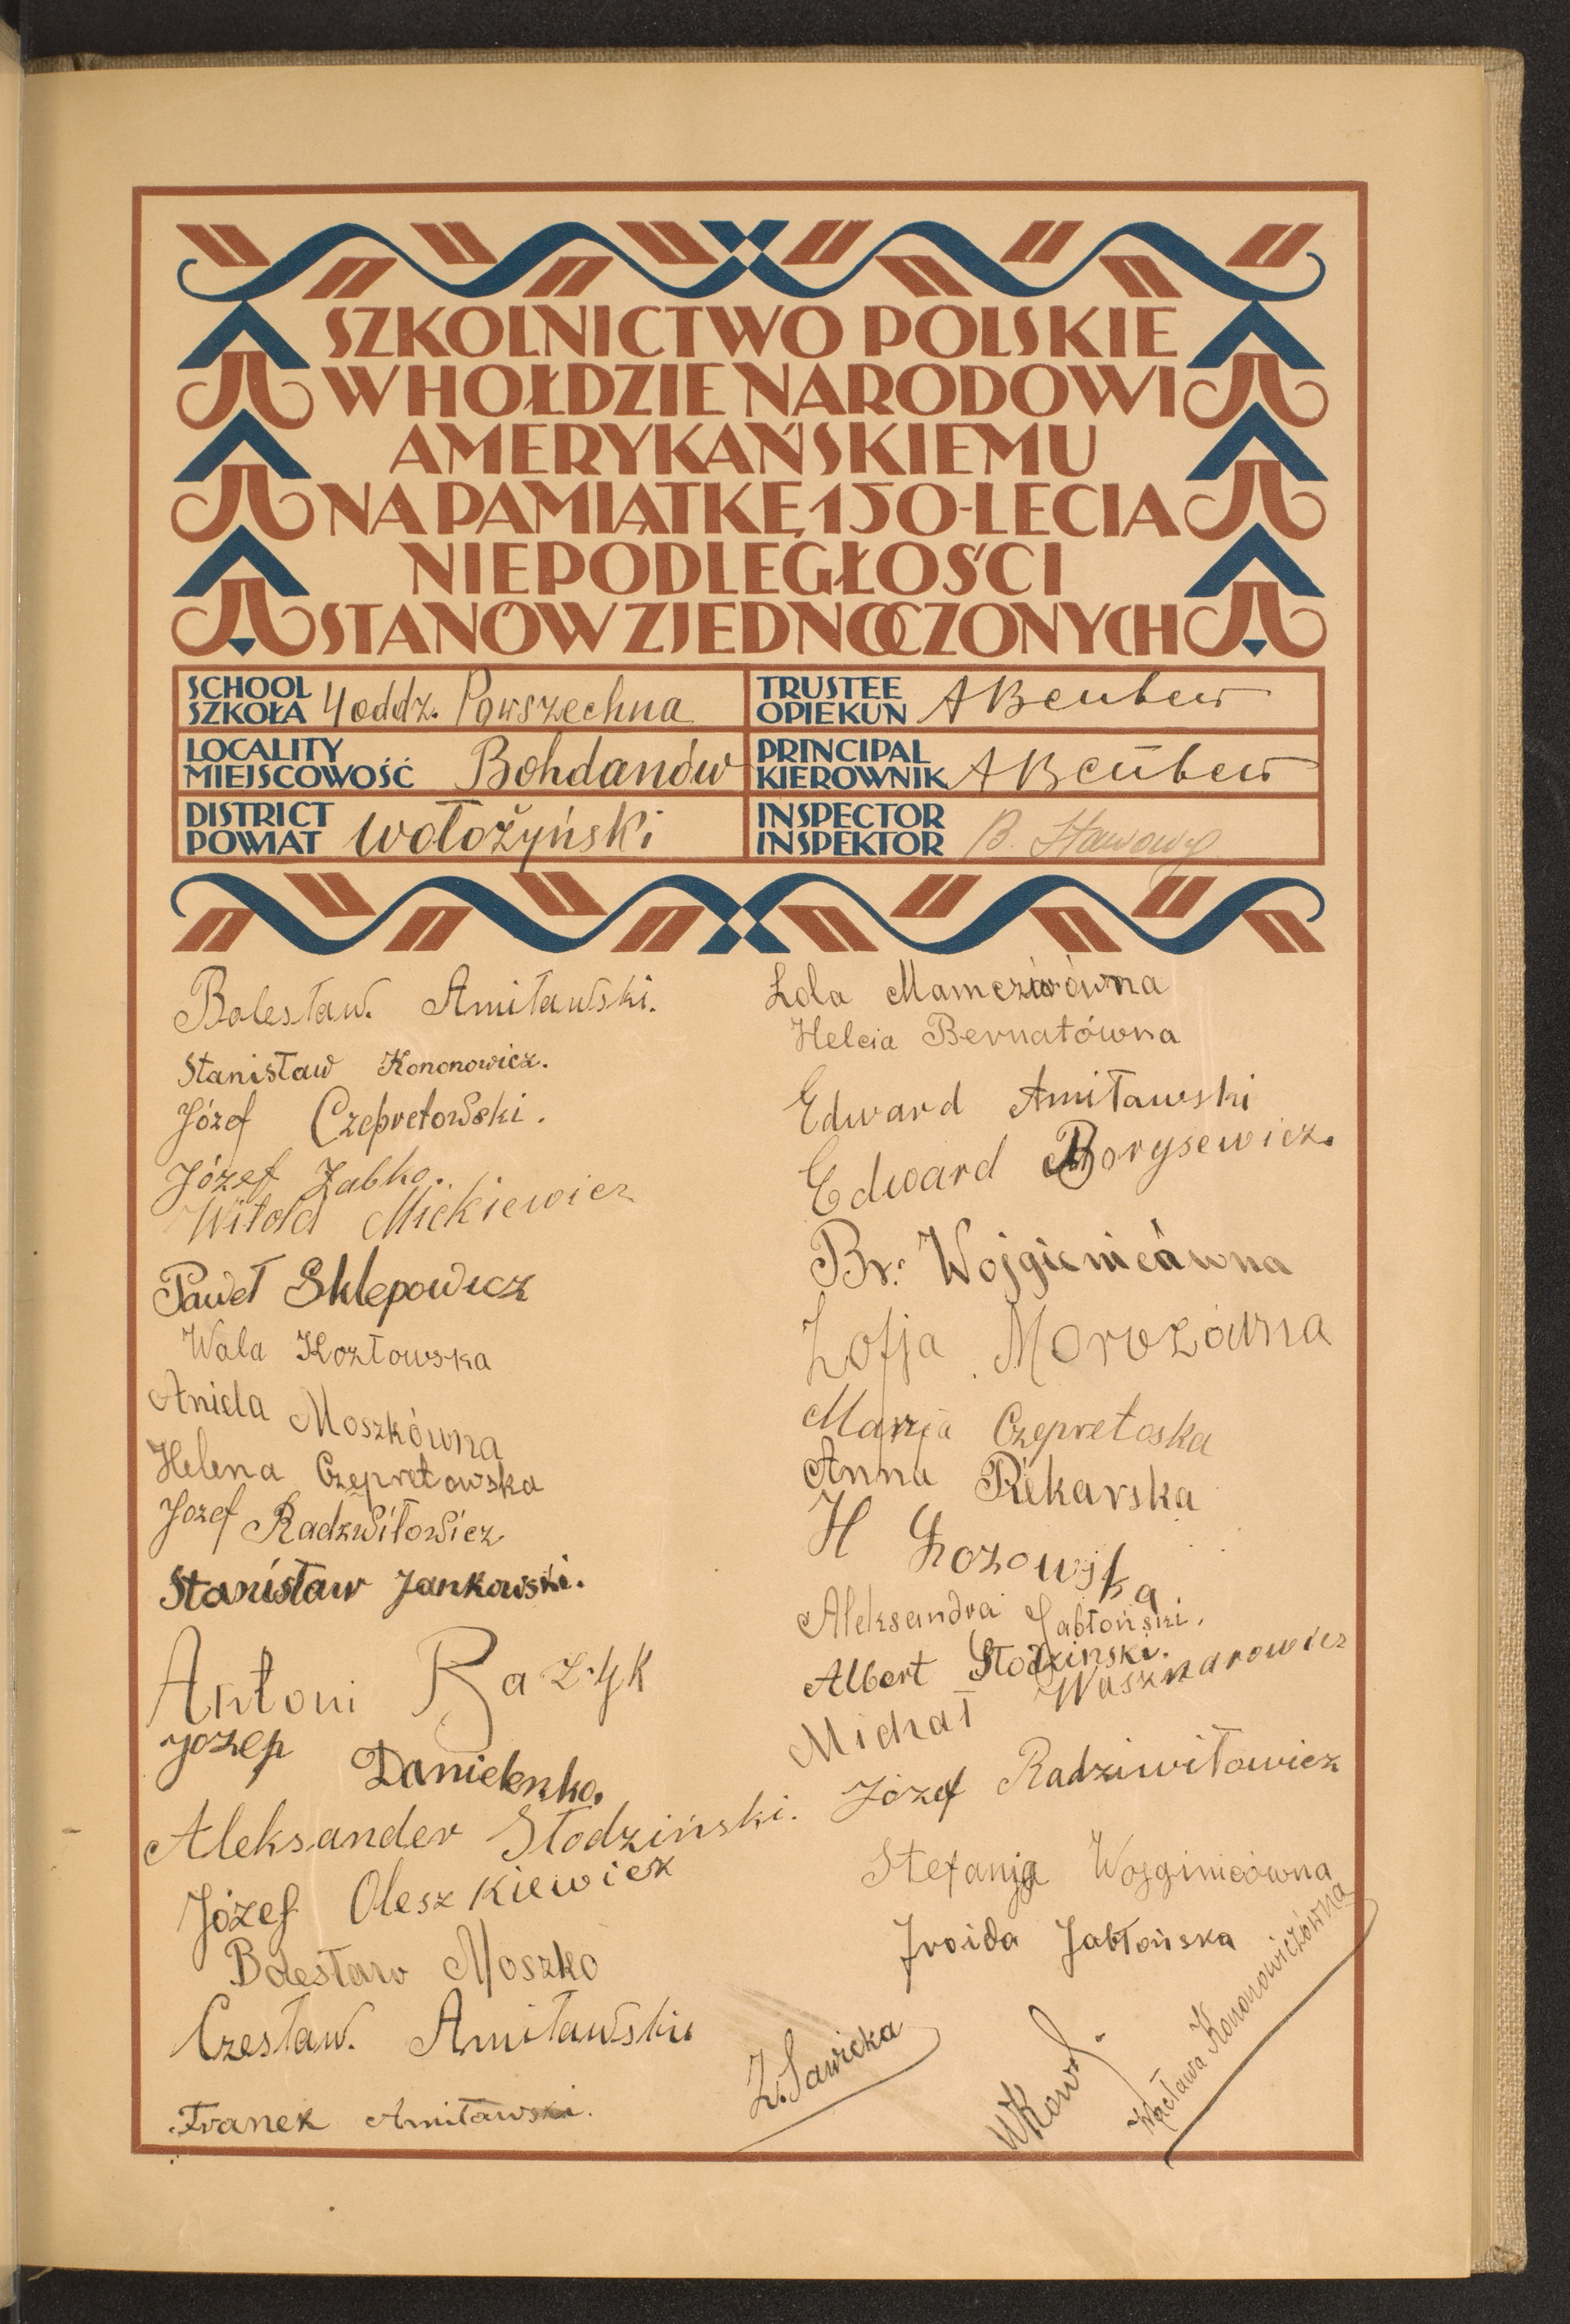 SZKOLNICTWO POLSKIE
W HOŁDZIE NARODOWI
AMERYKAŃSKIEMU
NA PAMIĄTKĘ 150-LECIA
NIEPODLEGŁOŚCI
STANÓW ZJEDNOCZONYCH
SCHOOL
SZKOŁA 4 oddz. Powszechna
TRUSTEE
OPIEKUN
LOCALITY
MIEJSCOWOŚĆ Bohdanów
PRINCIPAL
KIEROWNIK
DISTRICT
POWIAT wołożyński
INSPECTOR
INSPEKTOR B. Stawowy
Bolesław. Amiławski.
Stanisław Kononowicz.
Józef Czepretowski.
Józef Żabko.
Witold Mickiewicz
Paweł Sklepowicz
Wala Kozłowska
Aniela Moszkówna
Helena Czepretowska
Jozef Radzwiłowicz
Stanisław Jankowski.
Antoni Razyk
Jozep Danielenko.
Aleksander Słodziński.
Józef Oleszkiewicz
Bolesław Moszko
Czesław. Amiławski
Franek Amiławski.
Lola
Helcia Bernatówna
Edward Amiławski
Edward Borysewicz.
Br. Wojgienicówna
Zofja Morozówna
Marja Czepretoska
Anna Piekarska
H Łozowska
Aleksandra Jabłoński.
Albert Słodzinski.
Michał Wasznarowicz
Józef Radziwiłowicz
Stefanja Wojginicówna
Iroida Jabłońska
Z. Sawicka
WKow
Wacława Kononowiczówna